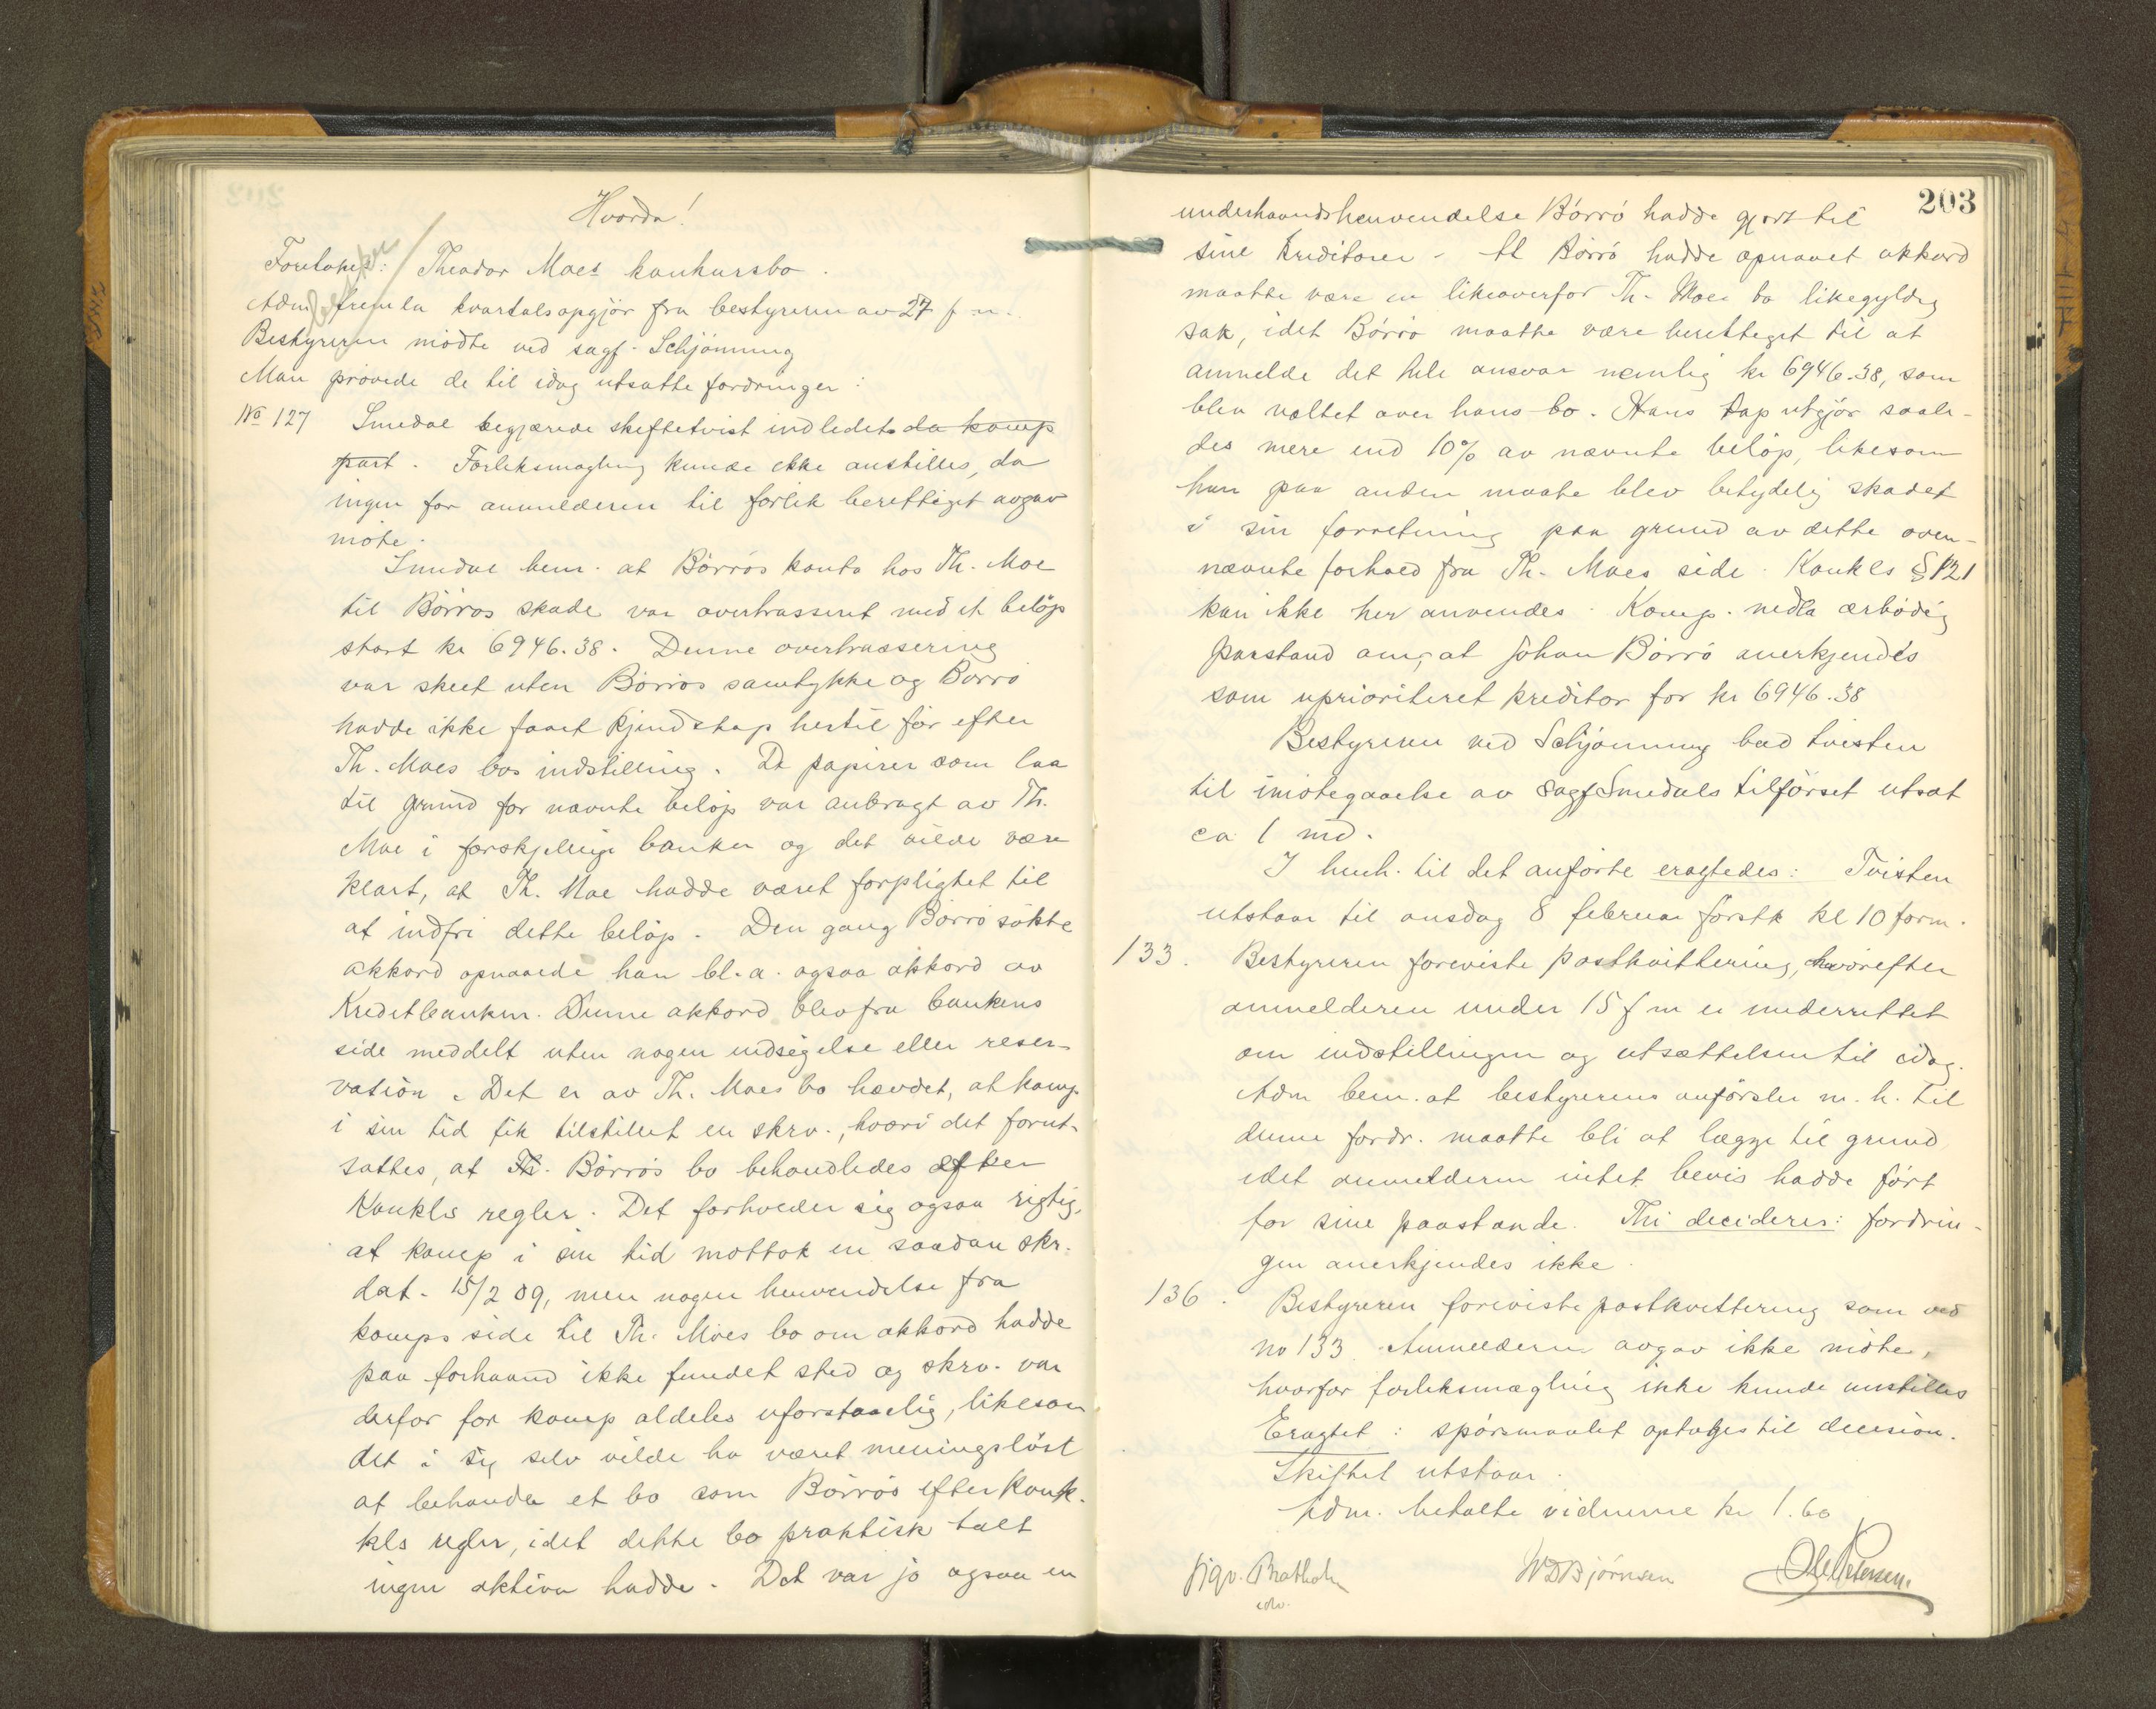 Hvorda!
Foretokes: Theodor Moes konkursbo.
Adm fremla kvartalsopgjör fra bestyreren av 27 f. m.
Bestyreren mödte ved sagf. Schjönning
Man prövede de til idag utsatte fordringer:
No 127 Smedal begjærede skiftetvist indledet da komp
part. Forliksmægling kunde ikke anstilles, da
ingen for anmelderen til forlik berettiget avgav
möte.
Smedal bem. at Börrös konto hos Th. Moe
til Börrös skade var overtrasseret med et belöp
stort kr 6946.38. Denne overtrassering
var skeet uten Börrös samtykke og Börrö
hadde ikke faaet kjendskap hertil för efter
Th. Moes bos indstilling. De papirer som laa
til grund for nævnte belöp var anbragt av Th.
Moe i forskjellige banker og det vilde være
klart, at Th. Moe hadde været forpligtet til
at indfri dette belöp. Den gang Börrö sökte
akkord opnaaede han bl. a. ogsaa akkord av
Kreditbanken. Denne akkord blev fra bankens
side meddelt uten nogen indsigelse eller reser-
vation. Det er av Th. Moes bo hævdet, at komp.
i sin tid fik tilstillet en skrv., hvori det forut-
sattes, at Th. Börrös bo behandledes efter
Konkls regler. Det forholder sig ogsaa rigtig,
at komp i sin tid mottok en saadan skr.
dat. 15/2 09, men nogen henvendelse fra
komps side til Th. Moes bo om akkord hadde
paa forhaand ikke fundet sted og skrv. var
derfor for komp aldeles uforstaaelig, likesom
det i sig selv vilde ha været meningslöst
at behandle et bo som Börrös efter konk-
kls regler, idet dette bo praktisk talt
ingen aktiva hadde. Det var jo ogsaa en
203
underhaandshenvendelse Börrö hadde gjort til
sine kreditorer. At Börrö hadde opnaaet akkord
maatte være en likeoverfor Th. Moes bo likegyldig
sak, idet Börrö maatte være berettiget til at
anmelde det hele ansvar nemlig kr 6946.38, som
blev væltet over hans bo. Hans tap utgjör saale-
des mere end 10% av nævnte belöp, likesom
han paa anden maate blev betydelig skadet
i sin forretning paa grund av dette oven-
nævnte forhold fra Th. Moes side. Konkls § 121
kan ikke her anvendes. Komp. nedla ærbödig
paastand om, at Johan Börrö anerkjendes
som uprioriteret kreditor for kr 6946.38
Bestyreren ved Schjönning bad tvisten
til imötegaaelse av sagf Smedals tilförsel utsat
ca 1 md.
I henh. til det anförte eragtedes: Tvisten
utstaar til onsdag 8 februar förstk kl 10 form.
133. Bestyreren foreviste postkvittering, hvorefter
anmelderen under 15 f m er underrettet
om indstillingen og utsættelsen til idag.
Adm bem. at bestyrerens anförsler m. h. til
denne fordr. maatte bli at lægge til grund
idet anmelderen intet bevis hadde fört
for sine paastande. Thi decideres: fordrin-
gen anerkjendes ikke.
136. Bestyreren foreviste postkvittering som ved
no 133. Anmelderen avgav ikke möte,
hvorfor forliksmægling ikke kunde anstilles
Eragtet: spörsmaalet optages til decision.
Skiftet utstaar.
Adm. betalte vidnerne kr 1.60
Sigv. Bratholm
WDBjörnsen
Ole Petersen.